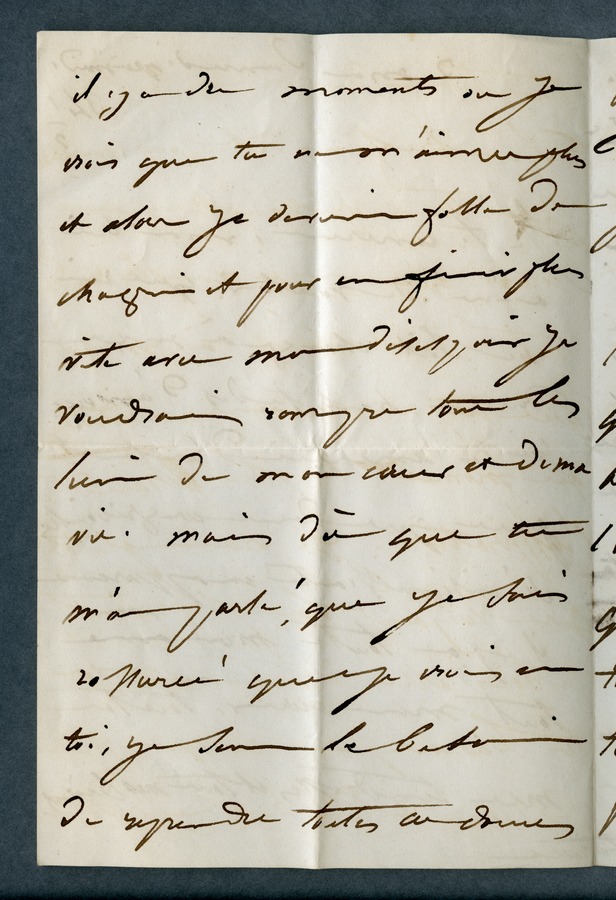 il y a des moments ou je
crois que tu ne m'aimes plus
et alors je deviens folle de
chagrin et pour en finir plus
vite avec mon désespoir je
voudrais rompre tous les
liens de mon cœur et de ma
vie. mais dès que tu
m'as parlé, que je suis
rassurée que je crois en
toi, je sens le besoin
de reprendre toutes ces douces